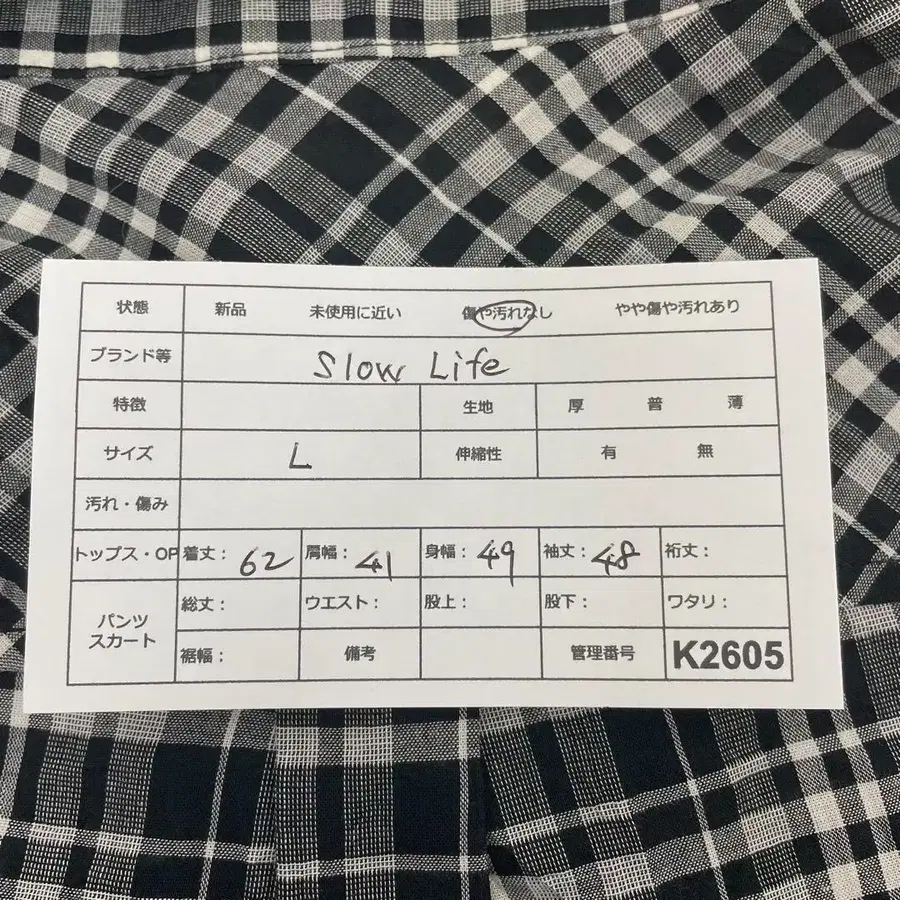 状態 新品 未使用に近い 傷や汚れなし やや傷や汚れあり
ブランド等 Slow Life
特徴 生地 厚 普 薄
サイズ L 伸縮性 有 無
汚れ・傷み
トップス・OP 着丈: 62 肩幅: 41 身幅: 49 袖丈: 48 裄丈:
パンツ スカート 総丈: ウエスト: 股上: 股下: ワタリ:
裾幅: 備考 管理番号 K2605